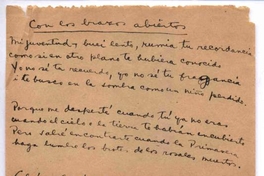 Con los brazos abiertos
Mi juventud, buey lento, rumia tu recordanza
como si en otro plano te hubiera conocido
Y no sé tu recuerdo, yo no sé tu fragancia
i te busco en la sombra como un niño perdido.
Porque me desperté cuando tú ya no eras
cuando el cielo i la tierra te habían encubierto
Pero saldré a encontrarte cuando la Primavera
haga lumbre los brotes de los rosales muertos.